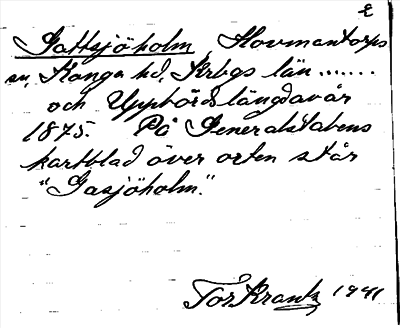 E
Gattsjöholm, Hovmantorps
sn, Konga hd, Krbgs län .......
och Uppbördslängd av år
1875. På Generalstabens
kartblad över orten står
"Gasjöholm".
Tor Krantz 1941